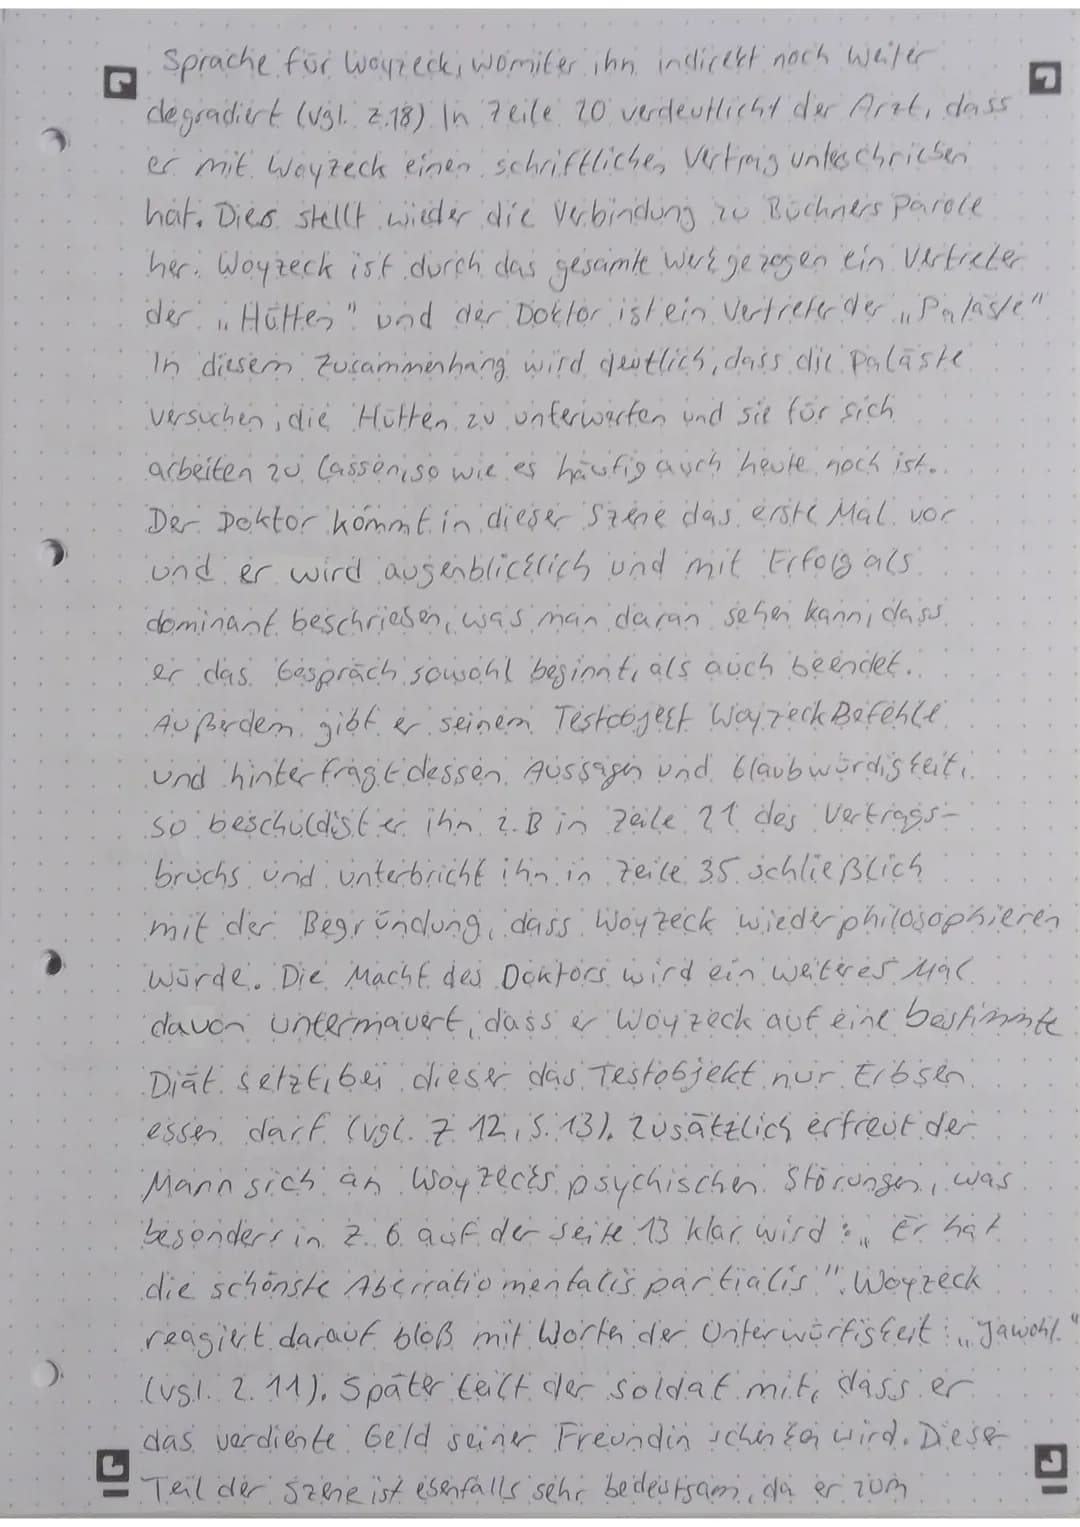 Sprache für Woyzeck, womit er ihn indirekt noch weiter
degradiert (vgl. Z.18). In Zeile 20 verdeutlicht der Arzt, dass
er mit Woyzeck einen schriftlichen Vertrag unterschrieben
hat. Dies stellt wieder die Verbindung zu Büchners Parole
her. Woyzeck ist durch das gesamte Werk gezogen ein Vertreter
der „Hütten" und der Doktor ist ein Vertreter der „Paläste"
In diesem Zusammenhang wird deutlich, dass die Paläste
versuchen, die Hütten zu unterwerfen und sie für sich
arbeiten zu lassen, so wie es häufig auch heute noch ist.
Der Doktor kommt in dieser Szene das erste Mal vor
und er wird augenblicklich und mit Erfolg als
dominant beschrieben, was man daran sehen kann, dass
er das Gespräch sowohl beginnt, als auch beendet.
Außerdem gibt er seinem Testobjekt Woyzeck Befehle
und hinterfragt dessen Aussagen und Glaubwürdigkeit,
so beschuldigt er ihn z.B in Zeile 21 des Vertrags-
bruchs und unterbricht ihn in Zeile 35 schließlich
mit der Begründung, dass Woyzeck wieder philosophieren
würde. Die Macht des Doktors wird ein weiteres Mal
davon untermauert, dass er Woyzeck auf eine bestimmte
Diät setzt, bei dieser das Testobjekt nur Erbsen
essen darf (vgl. Z 12, S. 13). Zusätzlich erfreut der
Mann sich an Woyzecks psychischen Störungen, was
besonders in Z. 6 auf der Seite 13 klar wird: „Er hat
die schönste Aberratio mentalis partialis". Woyzeck
reagiert darauf bloß mit Worten der Unterwürfigkeit: „Jawohl."
(vgl. Z. 11). Später teilt der Soldat mit, dass er
das verdiente Geld seiner Freundin schenken wird. Dieser
Teil der Szene ist ebenfalls sehr bedeutsam, da er zum